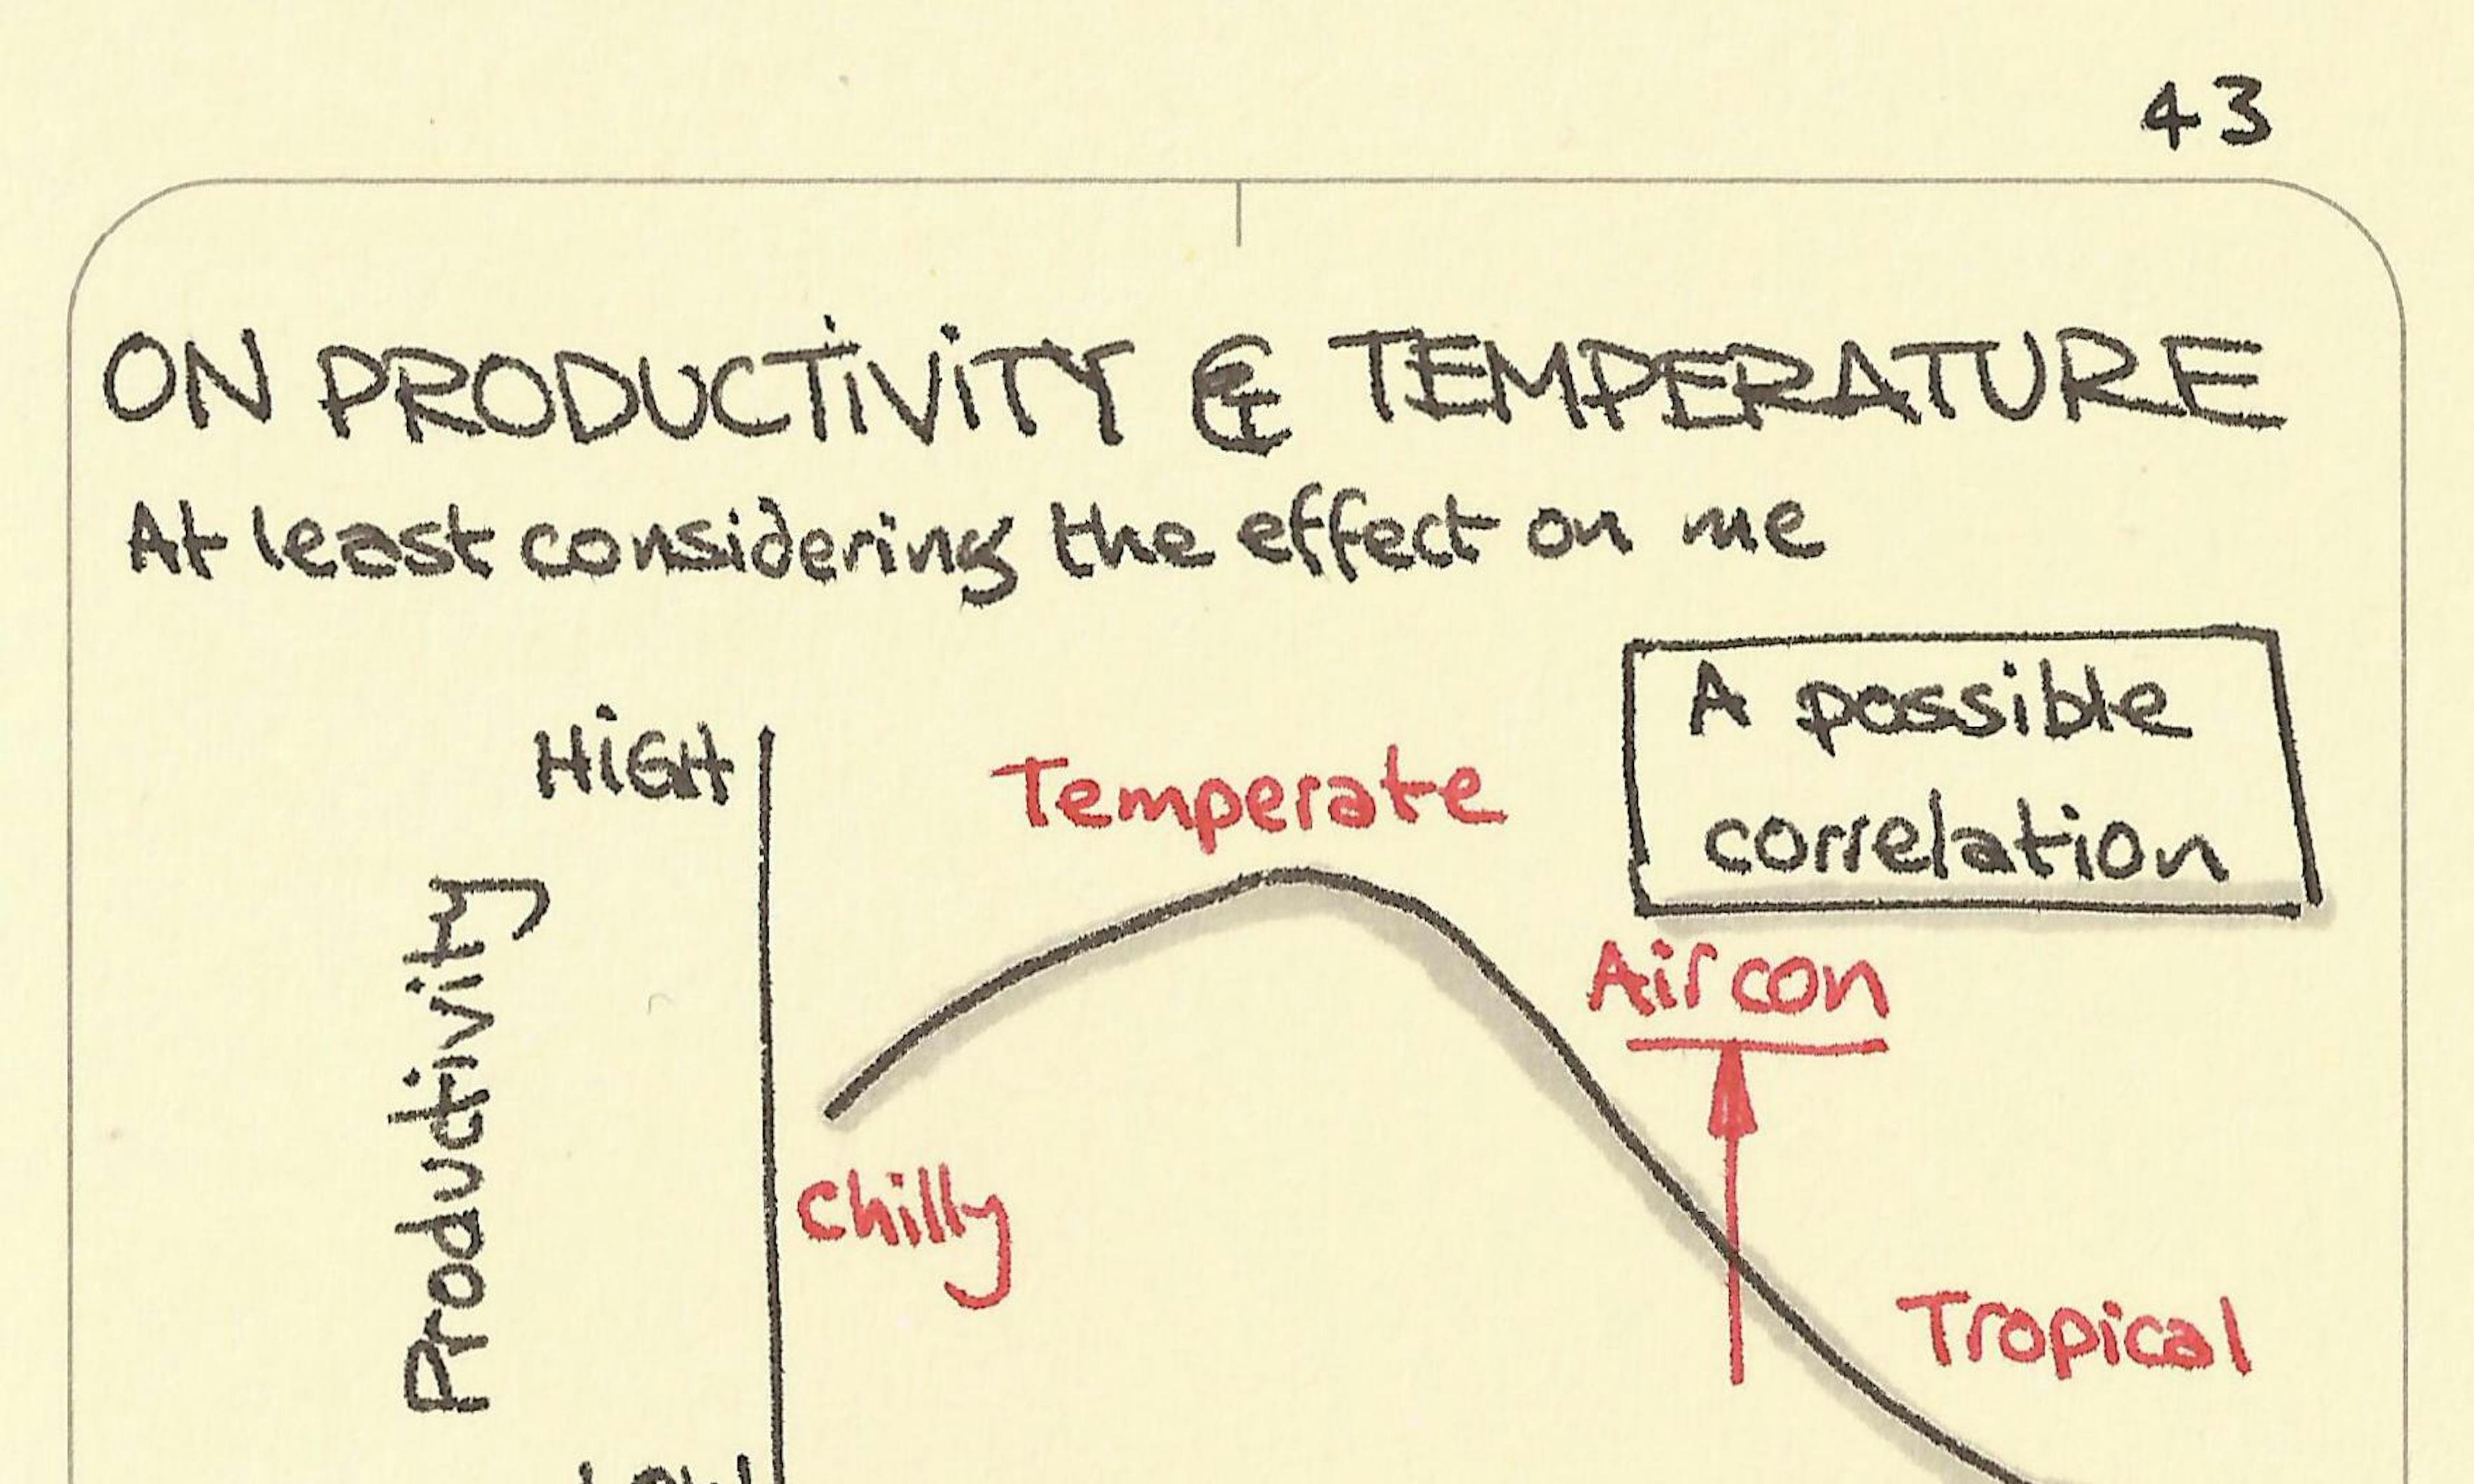 43
ON PRODUCTIVITY & TEMPERATURE
At least considering the effect on me
A possible
correlation
HIGH
Temperate
Aircon
Productivity
Chilly
Tropical
LOW